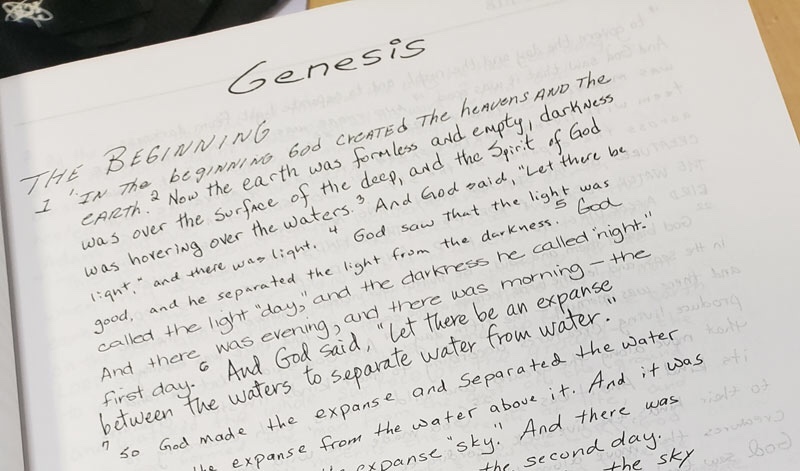 Genesis
THE BEGINNING
1 "IN The beginning God CREATEd The heavens AND The
EARTH. 2 Now the earth was formless and empty, darkness
was over the surface of the deep, and the Spirit of God
was hovering over the waters. 3 And God said, "Let there be
light," and there was light. 4 God saw that the light was
good, and he separated the light from the darkness. 5 God
called the light "day," and the darkness he called "night."
And there was evening, and there was morning - the
first day. 6 And God said, "Let there be an expanse
between the waters to separate water from water."
7 So God made the expanse and separated the water
the expanse from the water above it. And it was
expanse "sky." And there was
the second day.
the sky